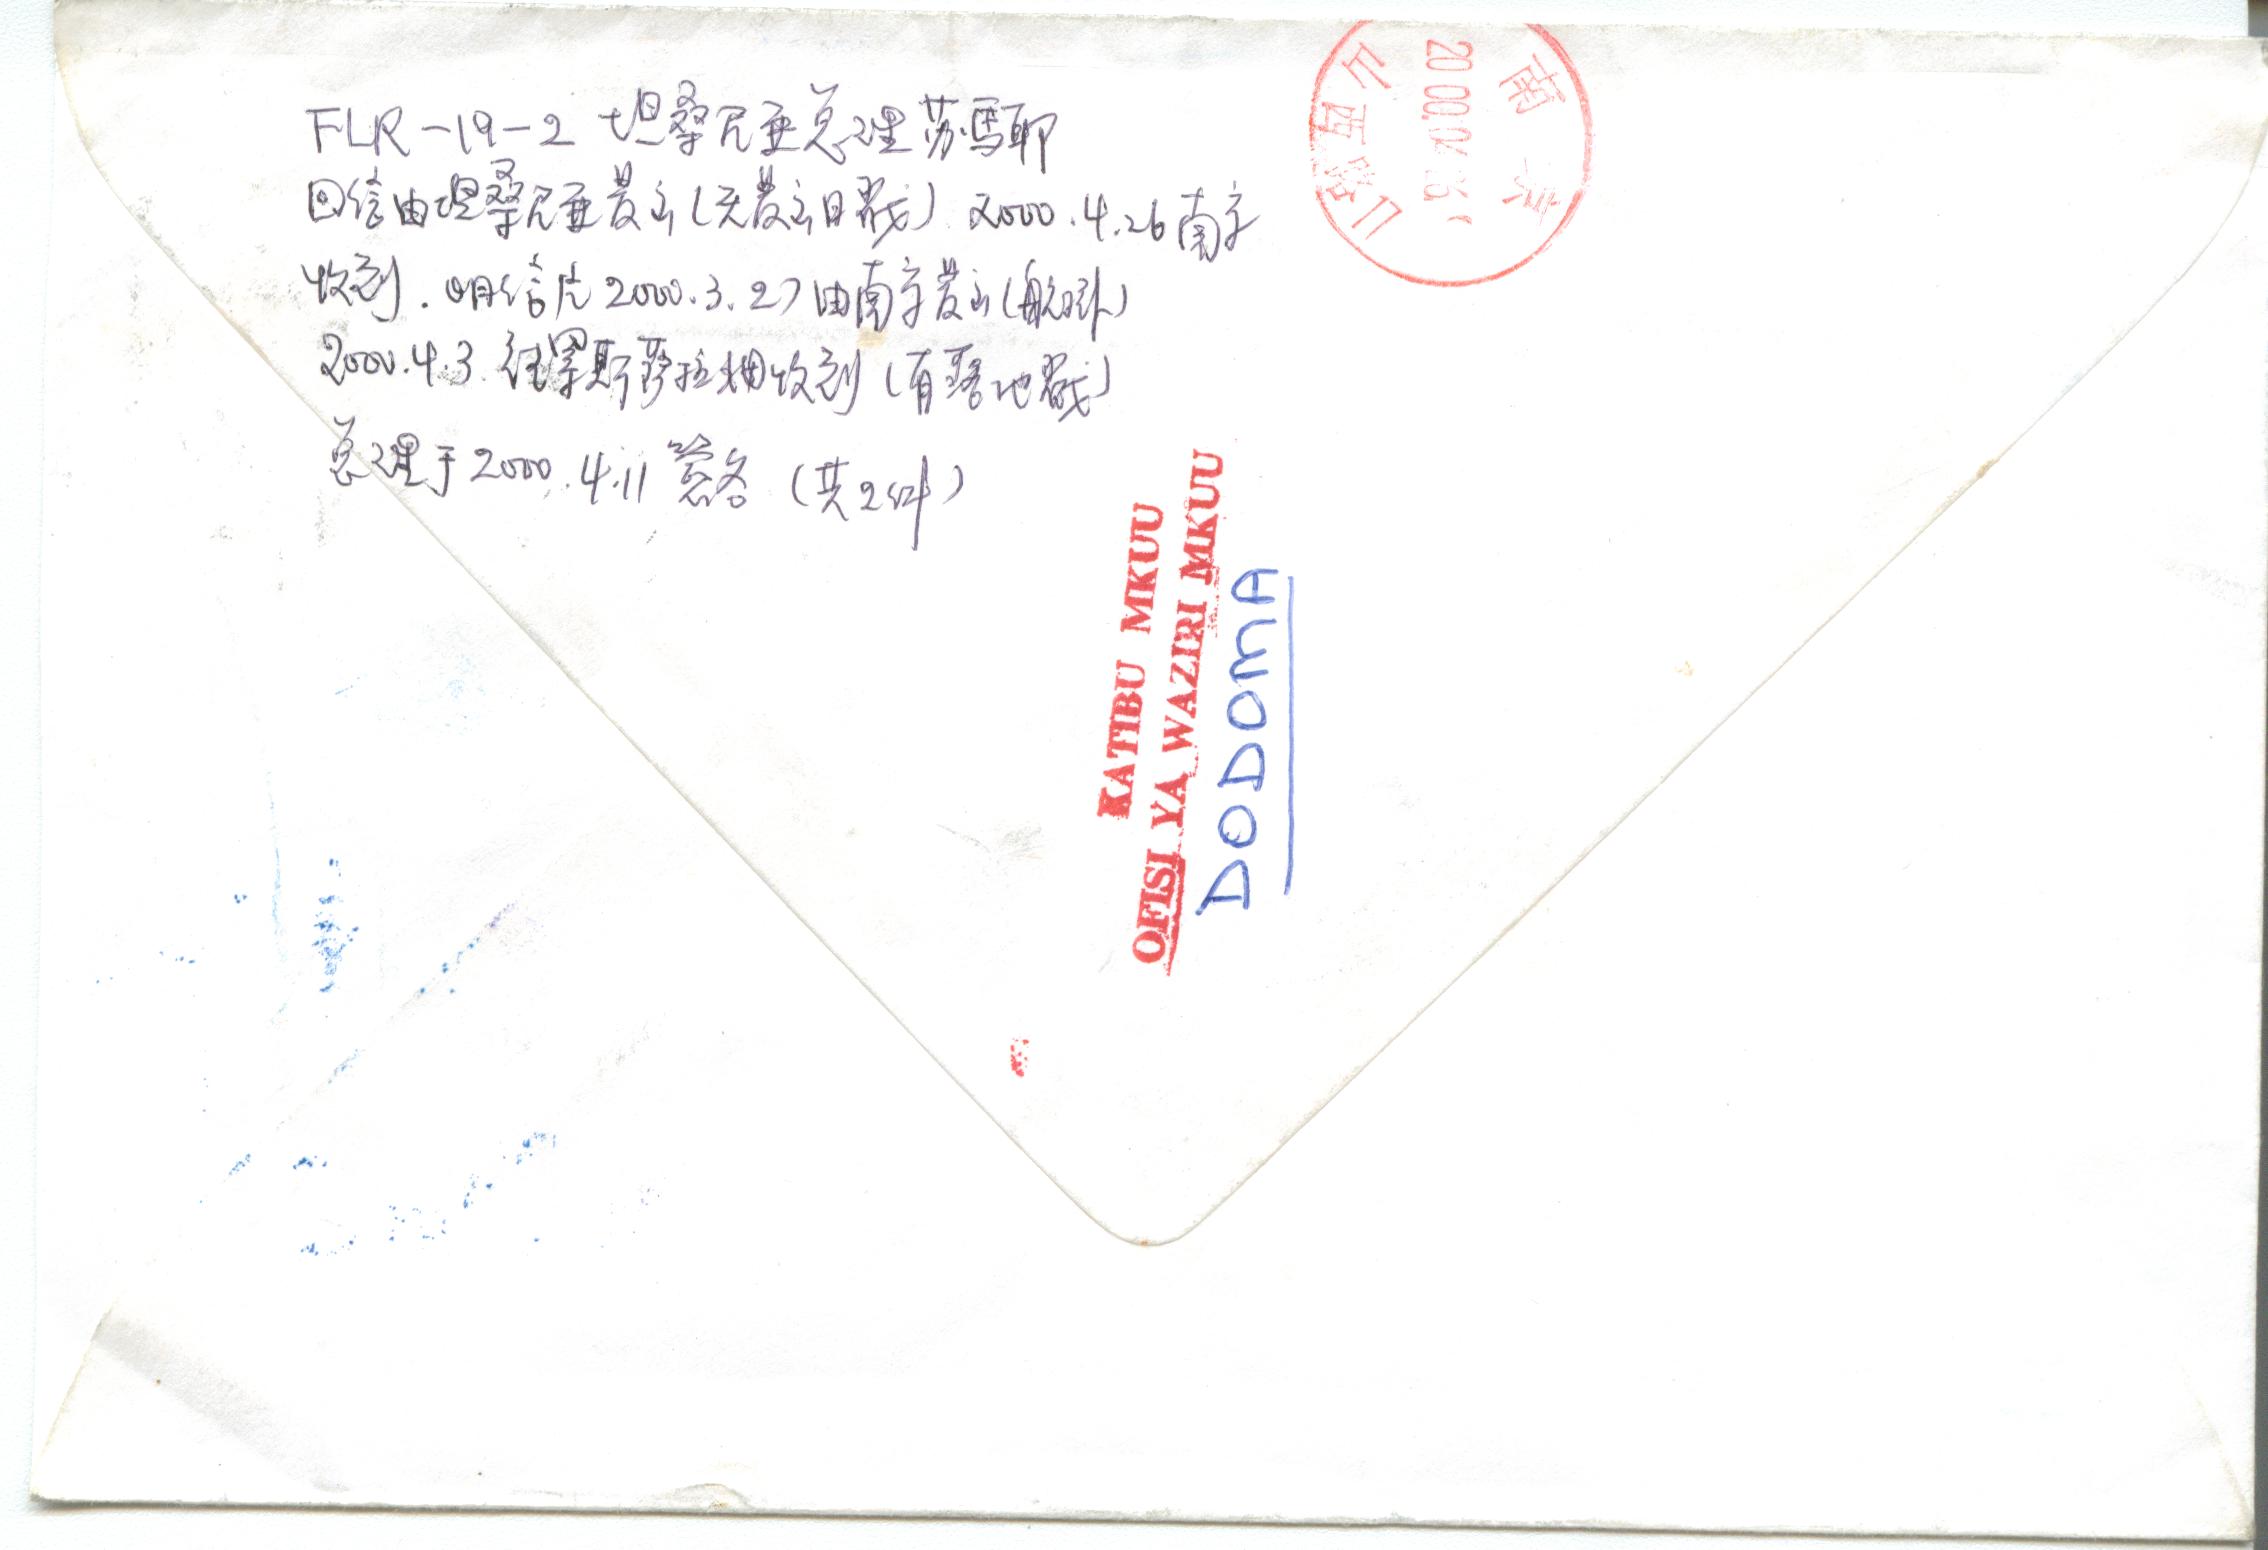 FLR-19-2 坦桑尼亚总理苏马耶
回信由坦桑尼亚发出(无发出日戳) 2000.4.26南京
收到.明信片2000.3.27由南京发出(航挂)
2000.4.3 往累斯萨拉姆收到(有落地戳)
总理于2000.4.11签名 (共2件)
南京
2000.04.26.
山西路
KATIBU MKUU
OFISI YA WAZIRI MKUU
DODOMA